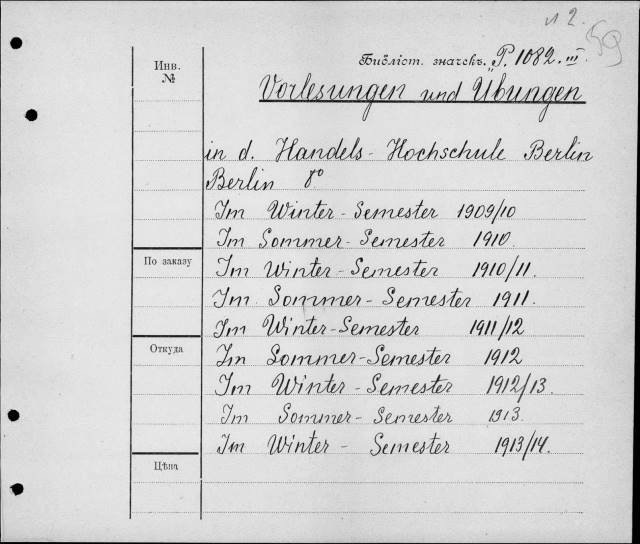 л 2.
59
Инв.
№
Библіот. значекъ. P. 1082. III.
Vorlesungen und Übungen
in d. Handels-Hochschule Berlin
Berlin 8°
Im Winter-Semester 1909/10
Im Sommer-Semester 1910.
По заказу
Im Winter-Semester 1910/11.
Im Sommer-Semester 1911.
Im Winter-Semester 1911/12
Откуда
Im Sommer-Semester 1912
Im Winter-Semester 1912/13.
Im Sommer-Semester 1913.
Im Winter-Semester 1913/14.
Цѣна